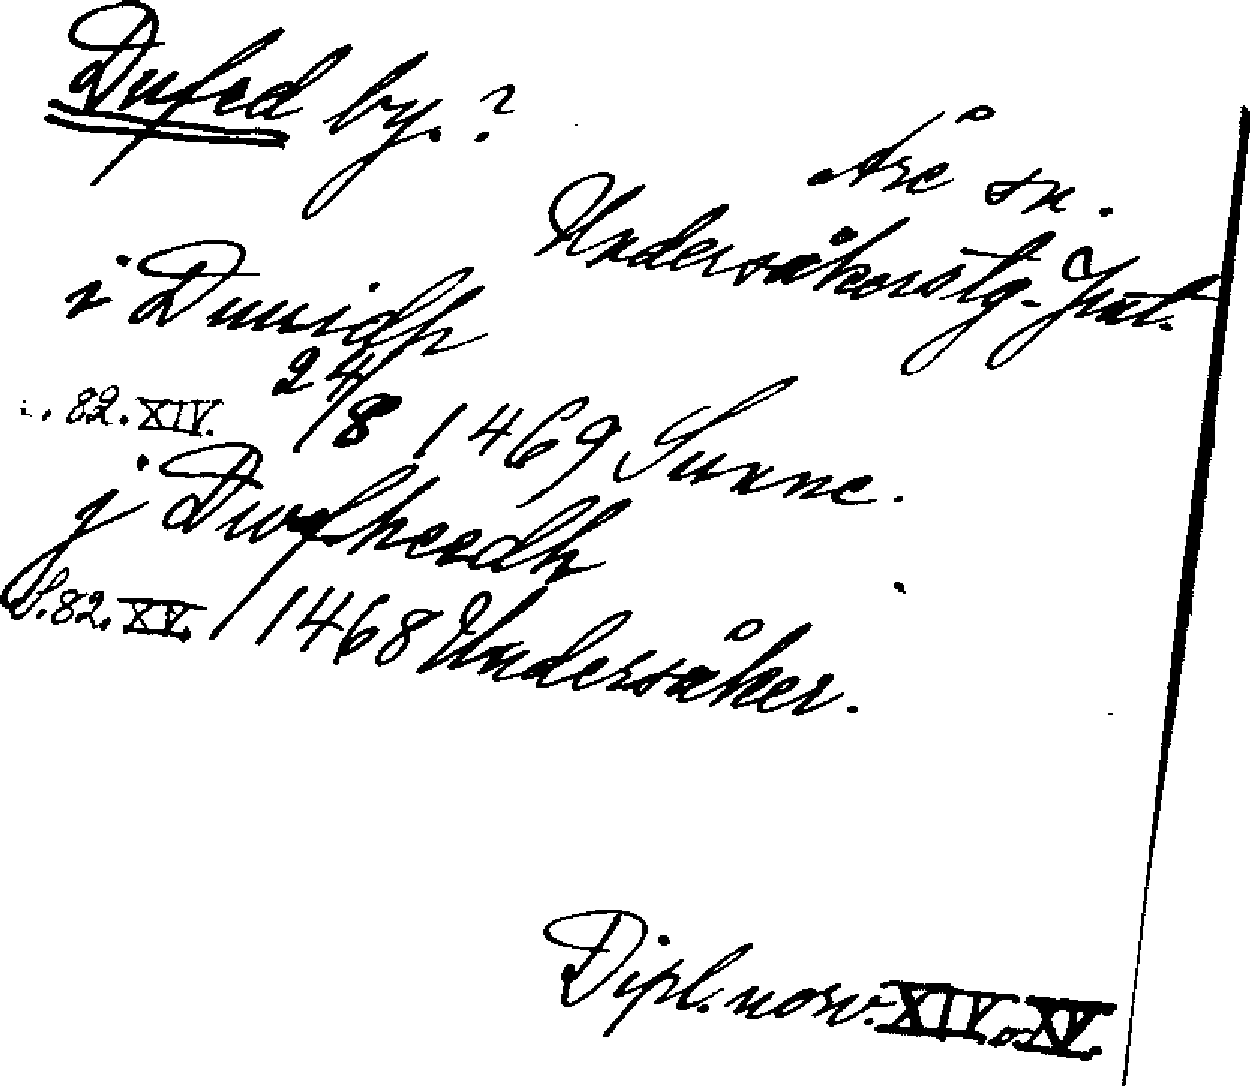 Dufed by. ?
Åre sn.
Undersåkerstg. Jmtl.
i Duuidh
S. 82. XIV. 24/8 1469 Sunne.
j Dwfheedh
S. 82. XV. / 1468 Undersåker.
Dipl. norv. XIV. o. XV.